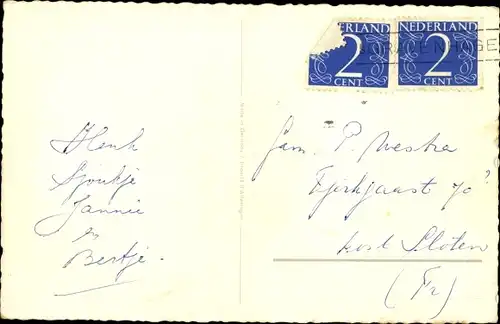 NEDERLAND
2
CENT
NEDERLAND
2
CENT
'S-GRAVENHAGE
Henk
Sjoukje
Jannie
en
Bertje.
Fam. P. Westra
Tjerkgaast 70
post Sloten
(Fr)